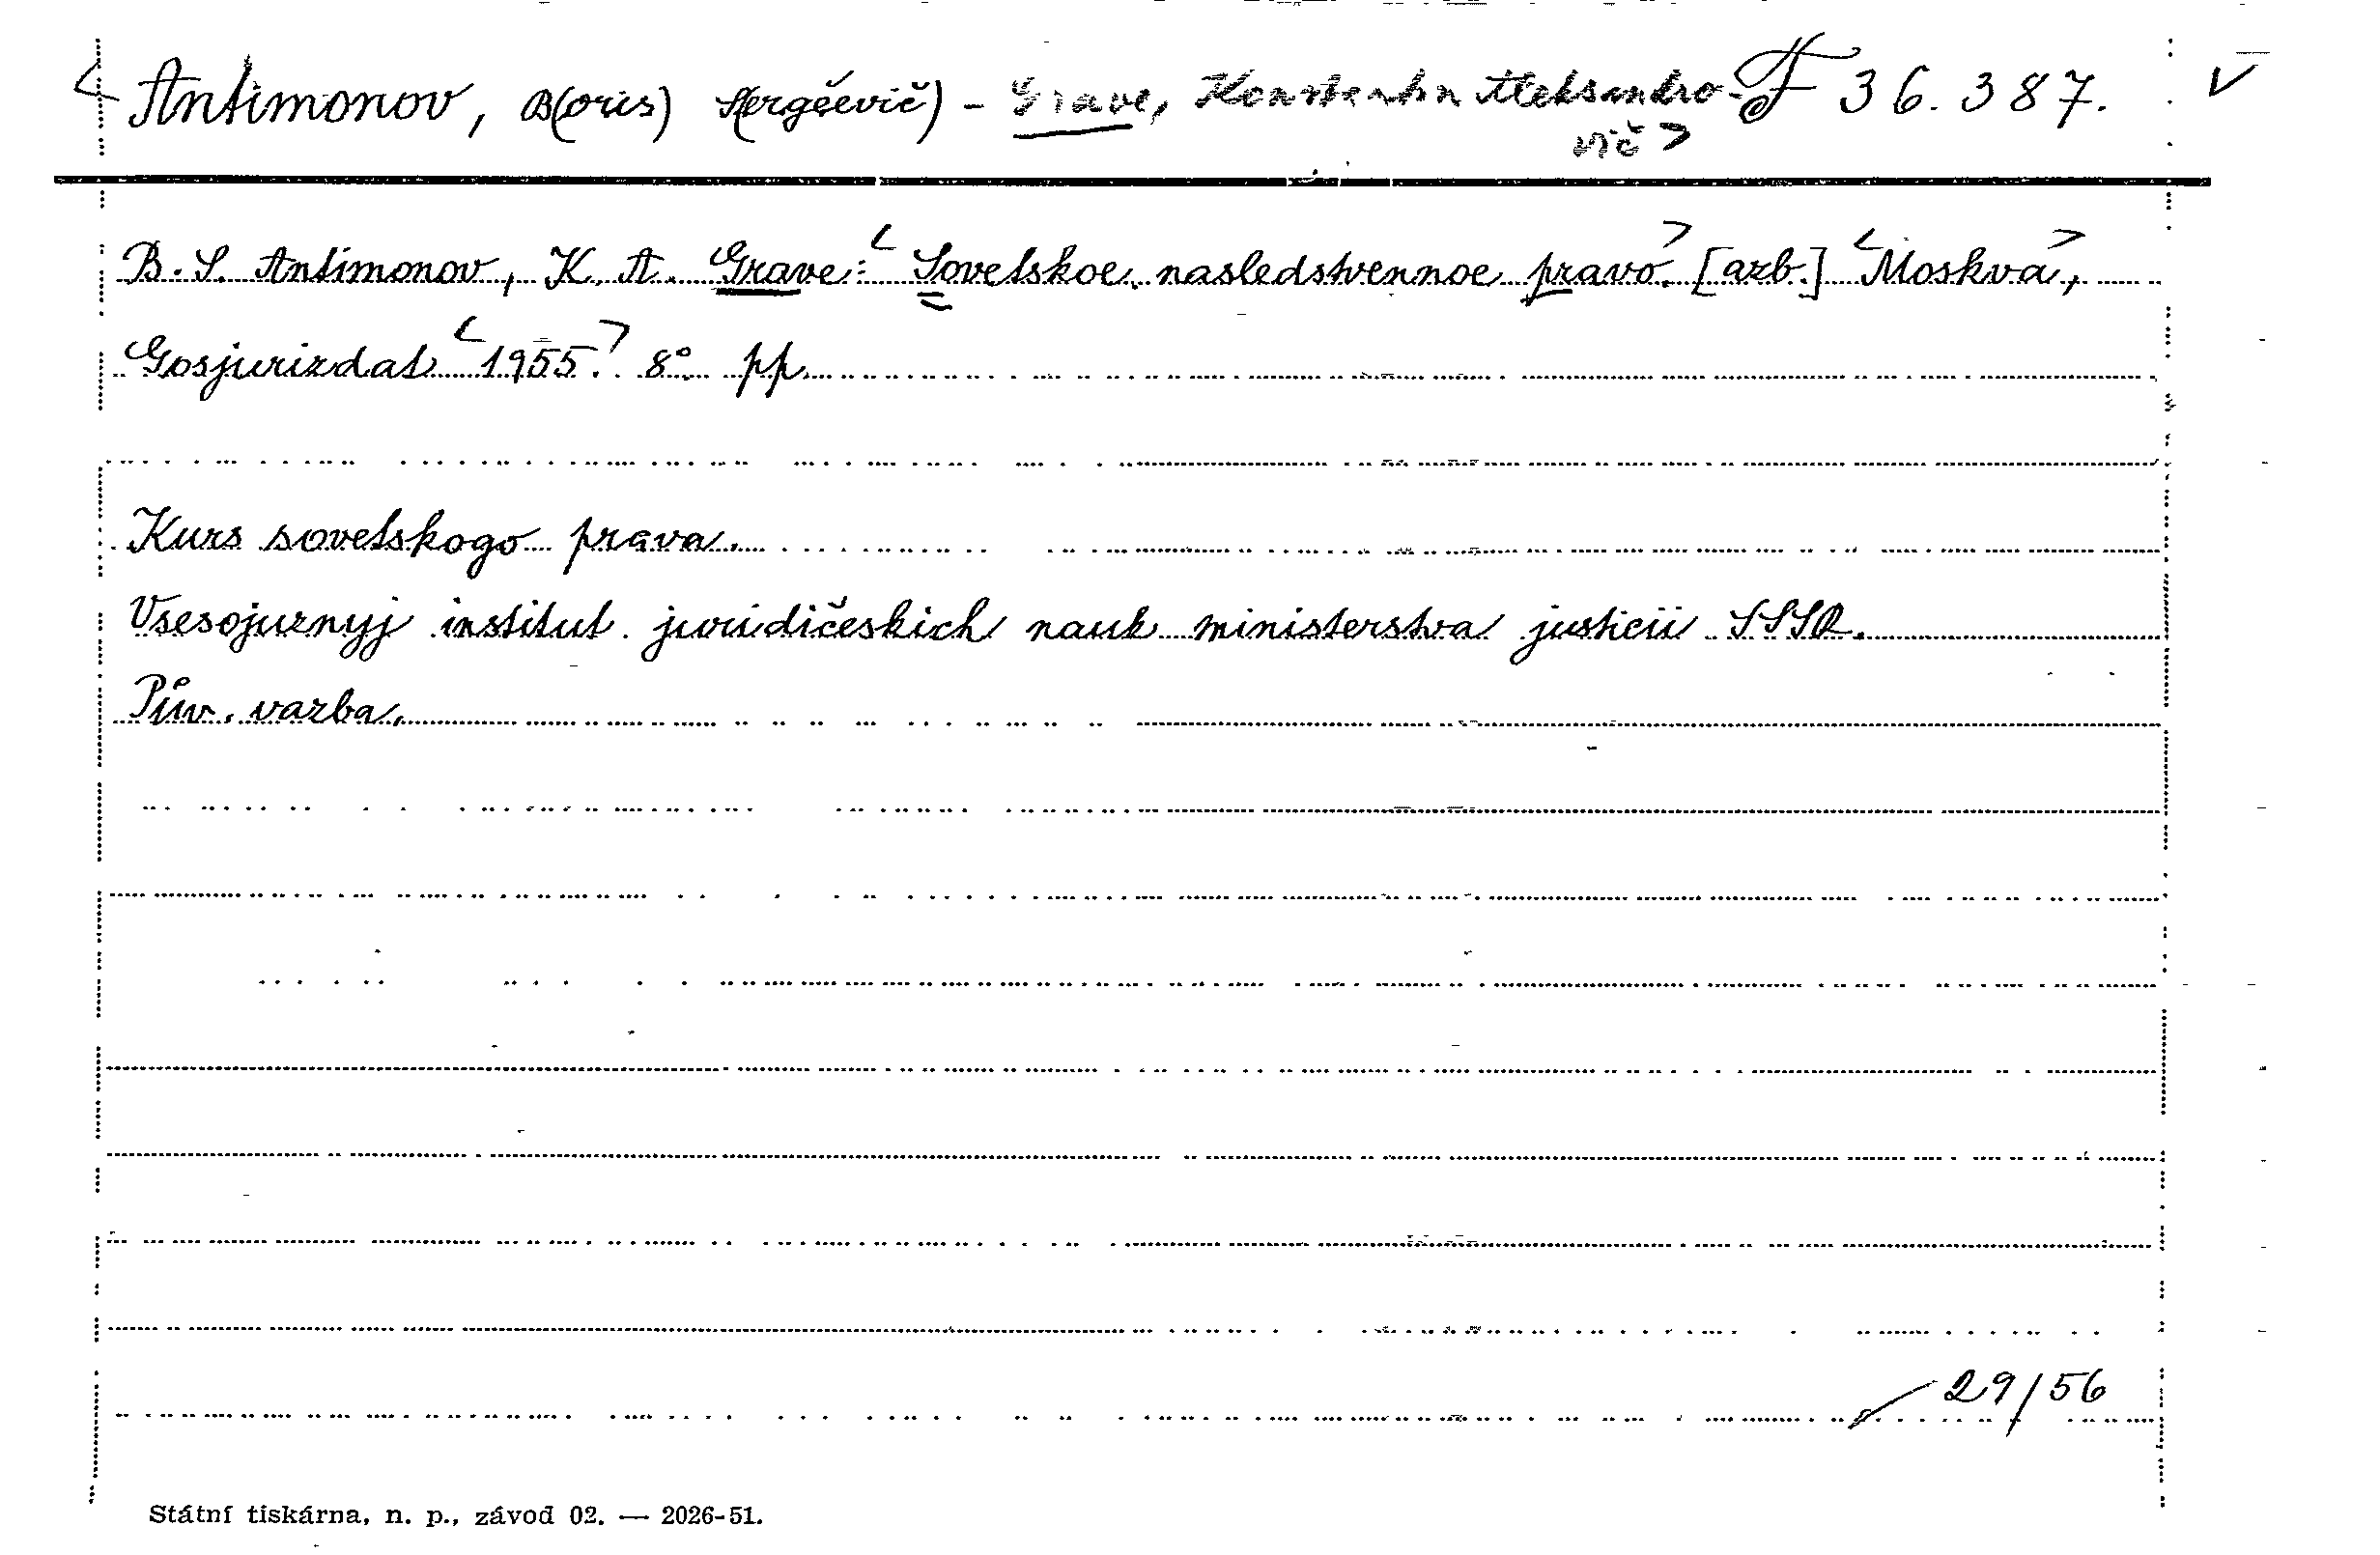 <Antimonov, B(oris) S(ergěevič) - Grave, Konstantin Aleksandro- F 36.387. V
vič>
B. S. Antimonov, K. A. Grave: <Sovetskoe nasledstvennoe pravo.> [azb.] <Moskva>,
Gosjurizdat <1955.> 8° pp.
Kurs sovetskogo prava.
Vsesojuznyj institut juridičeskich nauk ministerstva justicii SSSR.
Pův. vazba.
29/56
Státní tiskárna, n. p., závod 02. — 2026-51.